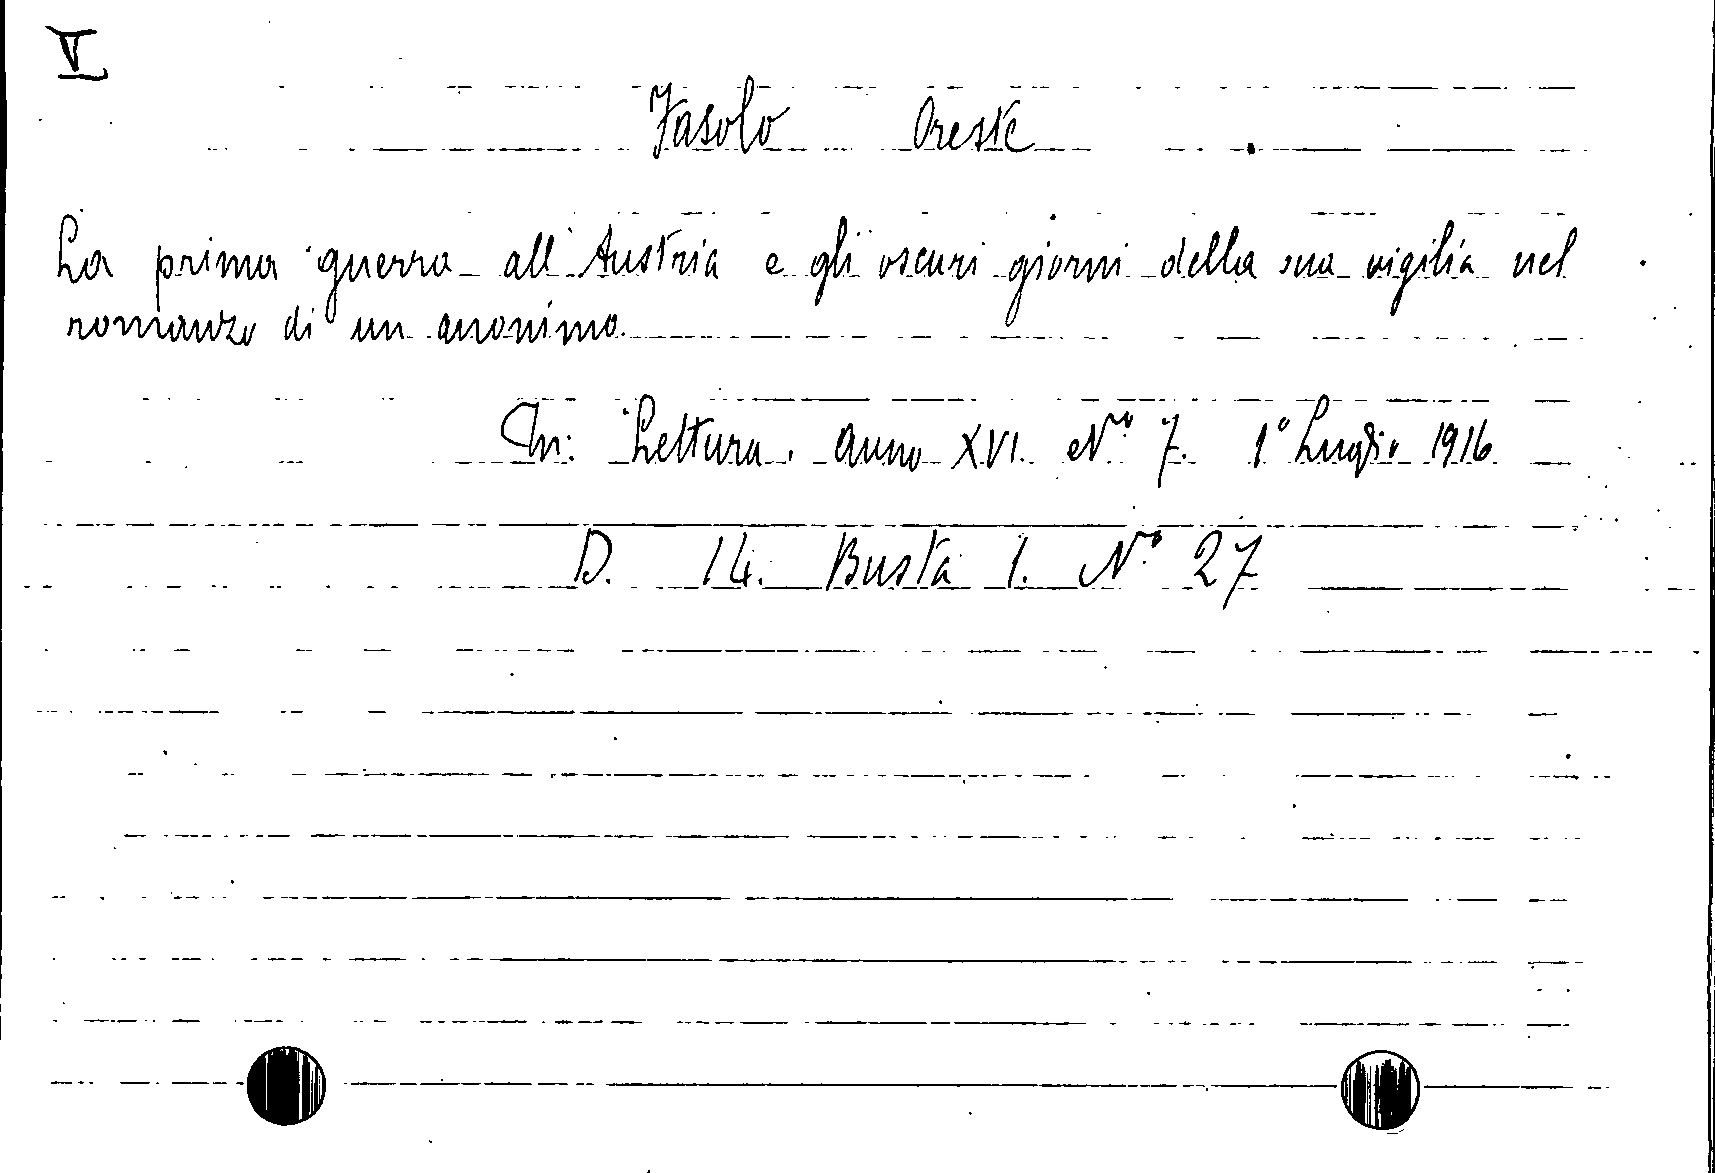 V
Fasolo Oreste
La prima guerra all'Austria e gli oscuri giorni della sua vigilia nel
romanzo di un anonimo.
In: Lettura. Anno XVI. N.° 7. 1° Luglio 1916
D. 14. Busta 1. N.° 27